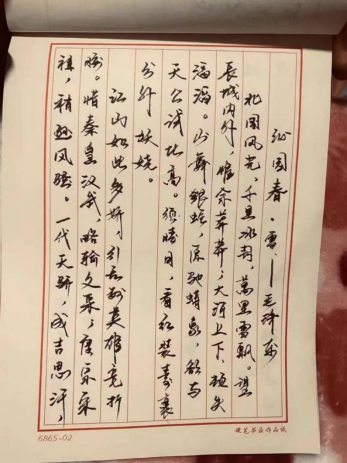 沁园春·雪——毛泽东
北国风光,千里冰封,萬里雪飘。望
長城内外,惟余莽莽;大河上下,顿失
滔滔。山舞银蛇,原驰蜡象,欲与
天公试比高。须晴日,看红装素裹
分外妖娆。
江山如此多娇,引无数英雄竞折
腰。惜秦皇汉武,略输文采;唐宗宋
祖,稍逊风骚。一代天骄,成吉思汗,
6865-02
硬笔书法作品纸